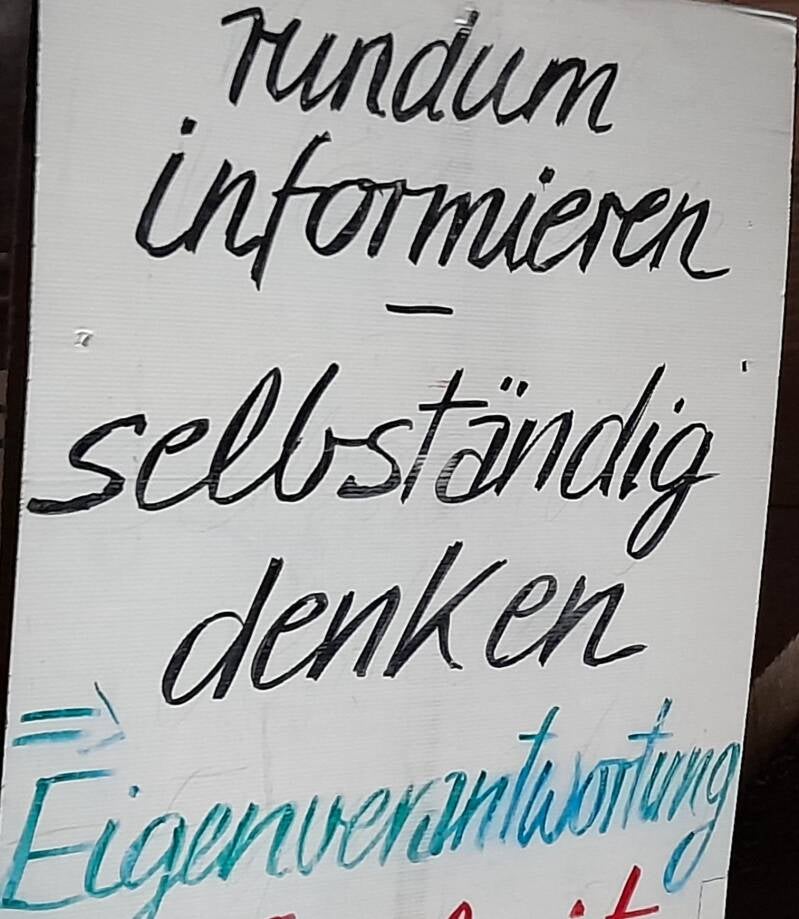 rundum
informieren
–
selbständig
denken
⇒
Eigenverantwortung